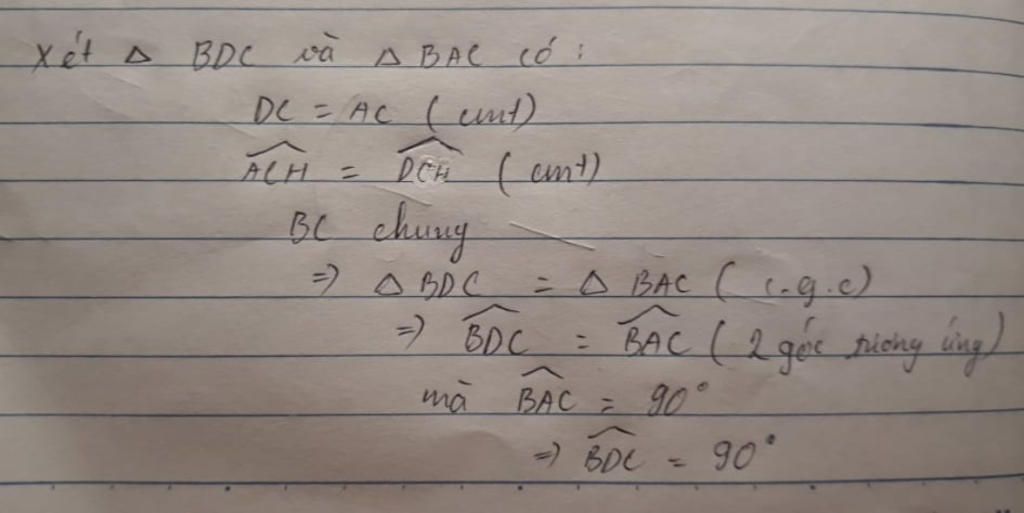 Xét Δ BDC và Δ BAC có :
DC = AC ( cmt)
\widehat{ACH} = \widehat{DCH} ( cmt)
BC chung
=> Δ BDC = Δ BAC ( c.g.c)
=> \widehat{BDC} = \widehat{BAC} ( 2 góc tương ứng)
mà \widehat{BAC} = 90°
=> \widehat{BDC} = 90°